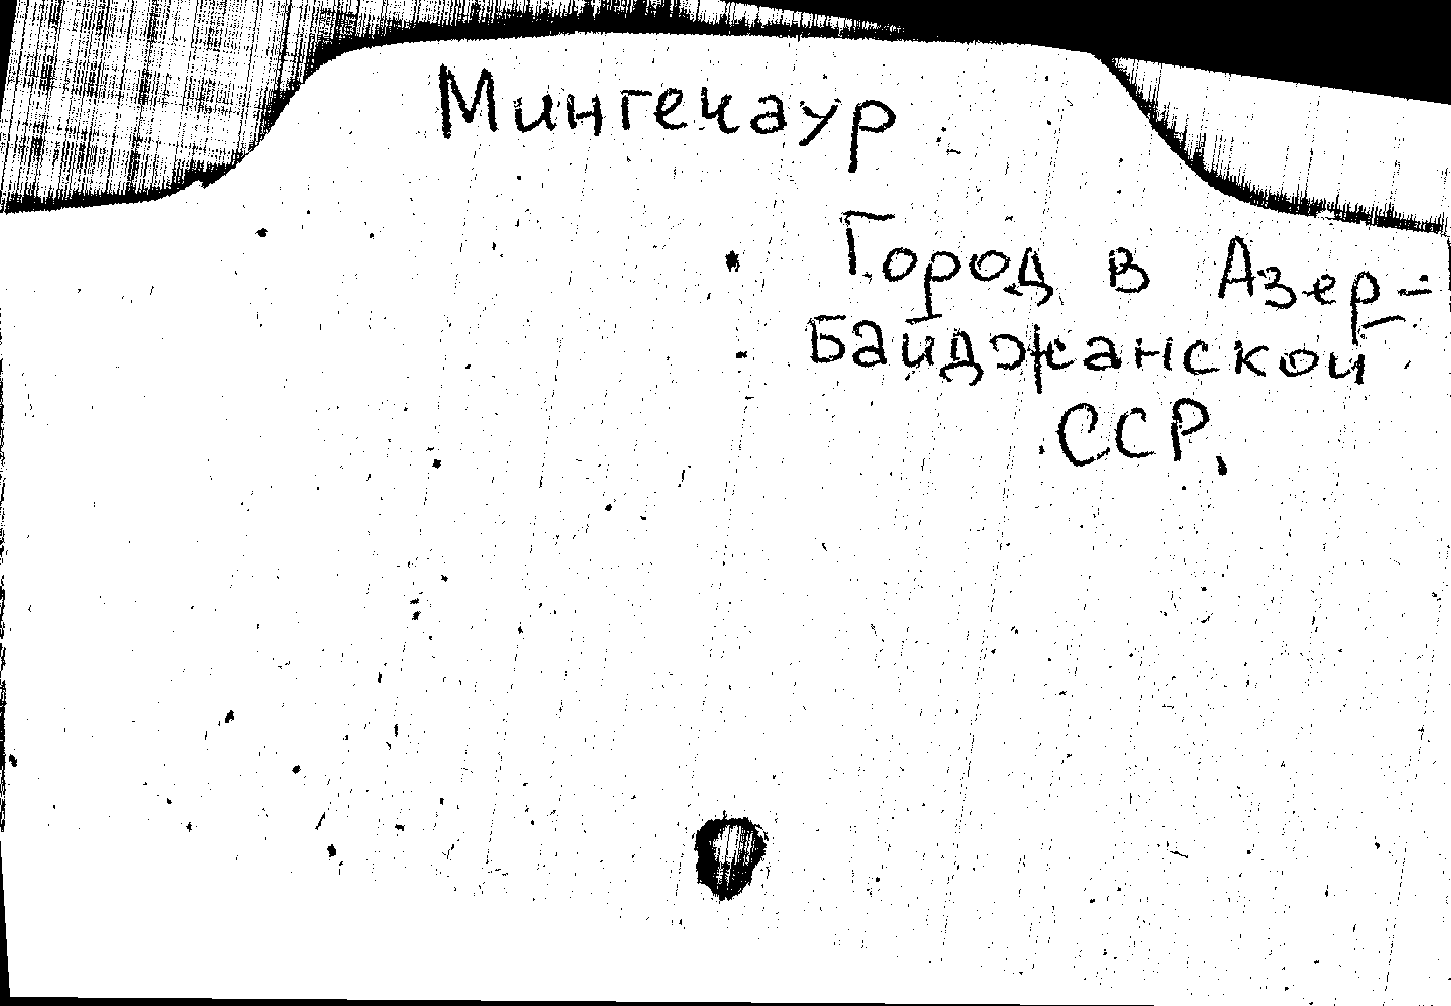 Мингечаур
Город в Азер-
байджанской
ССР.